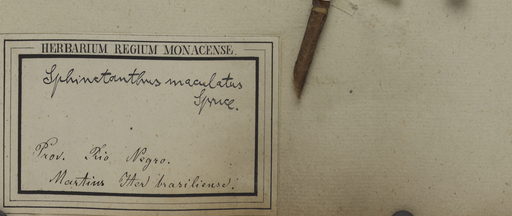 HERBARIUM REGIUM MONACENSE.
Sphinctanthus maculatus
Spruce.
Prov. Rio Negro.
Martius Iter brasiliense.